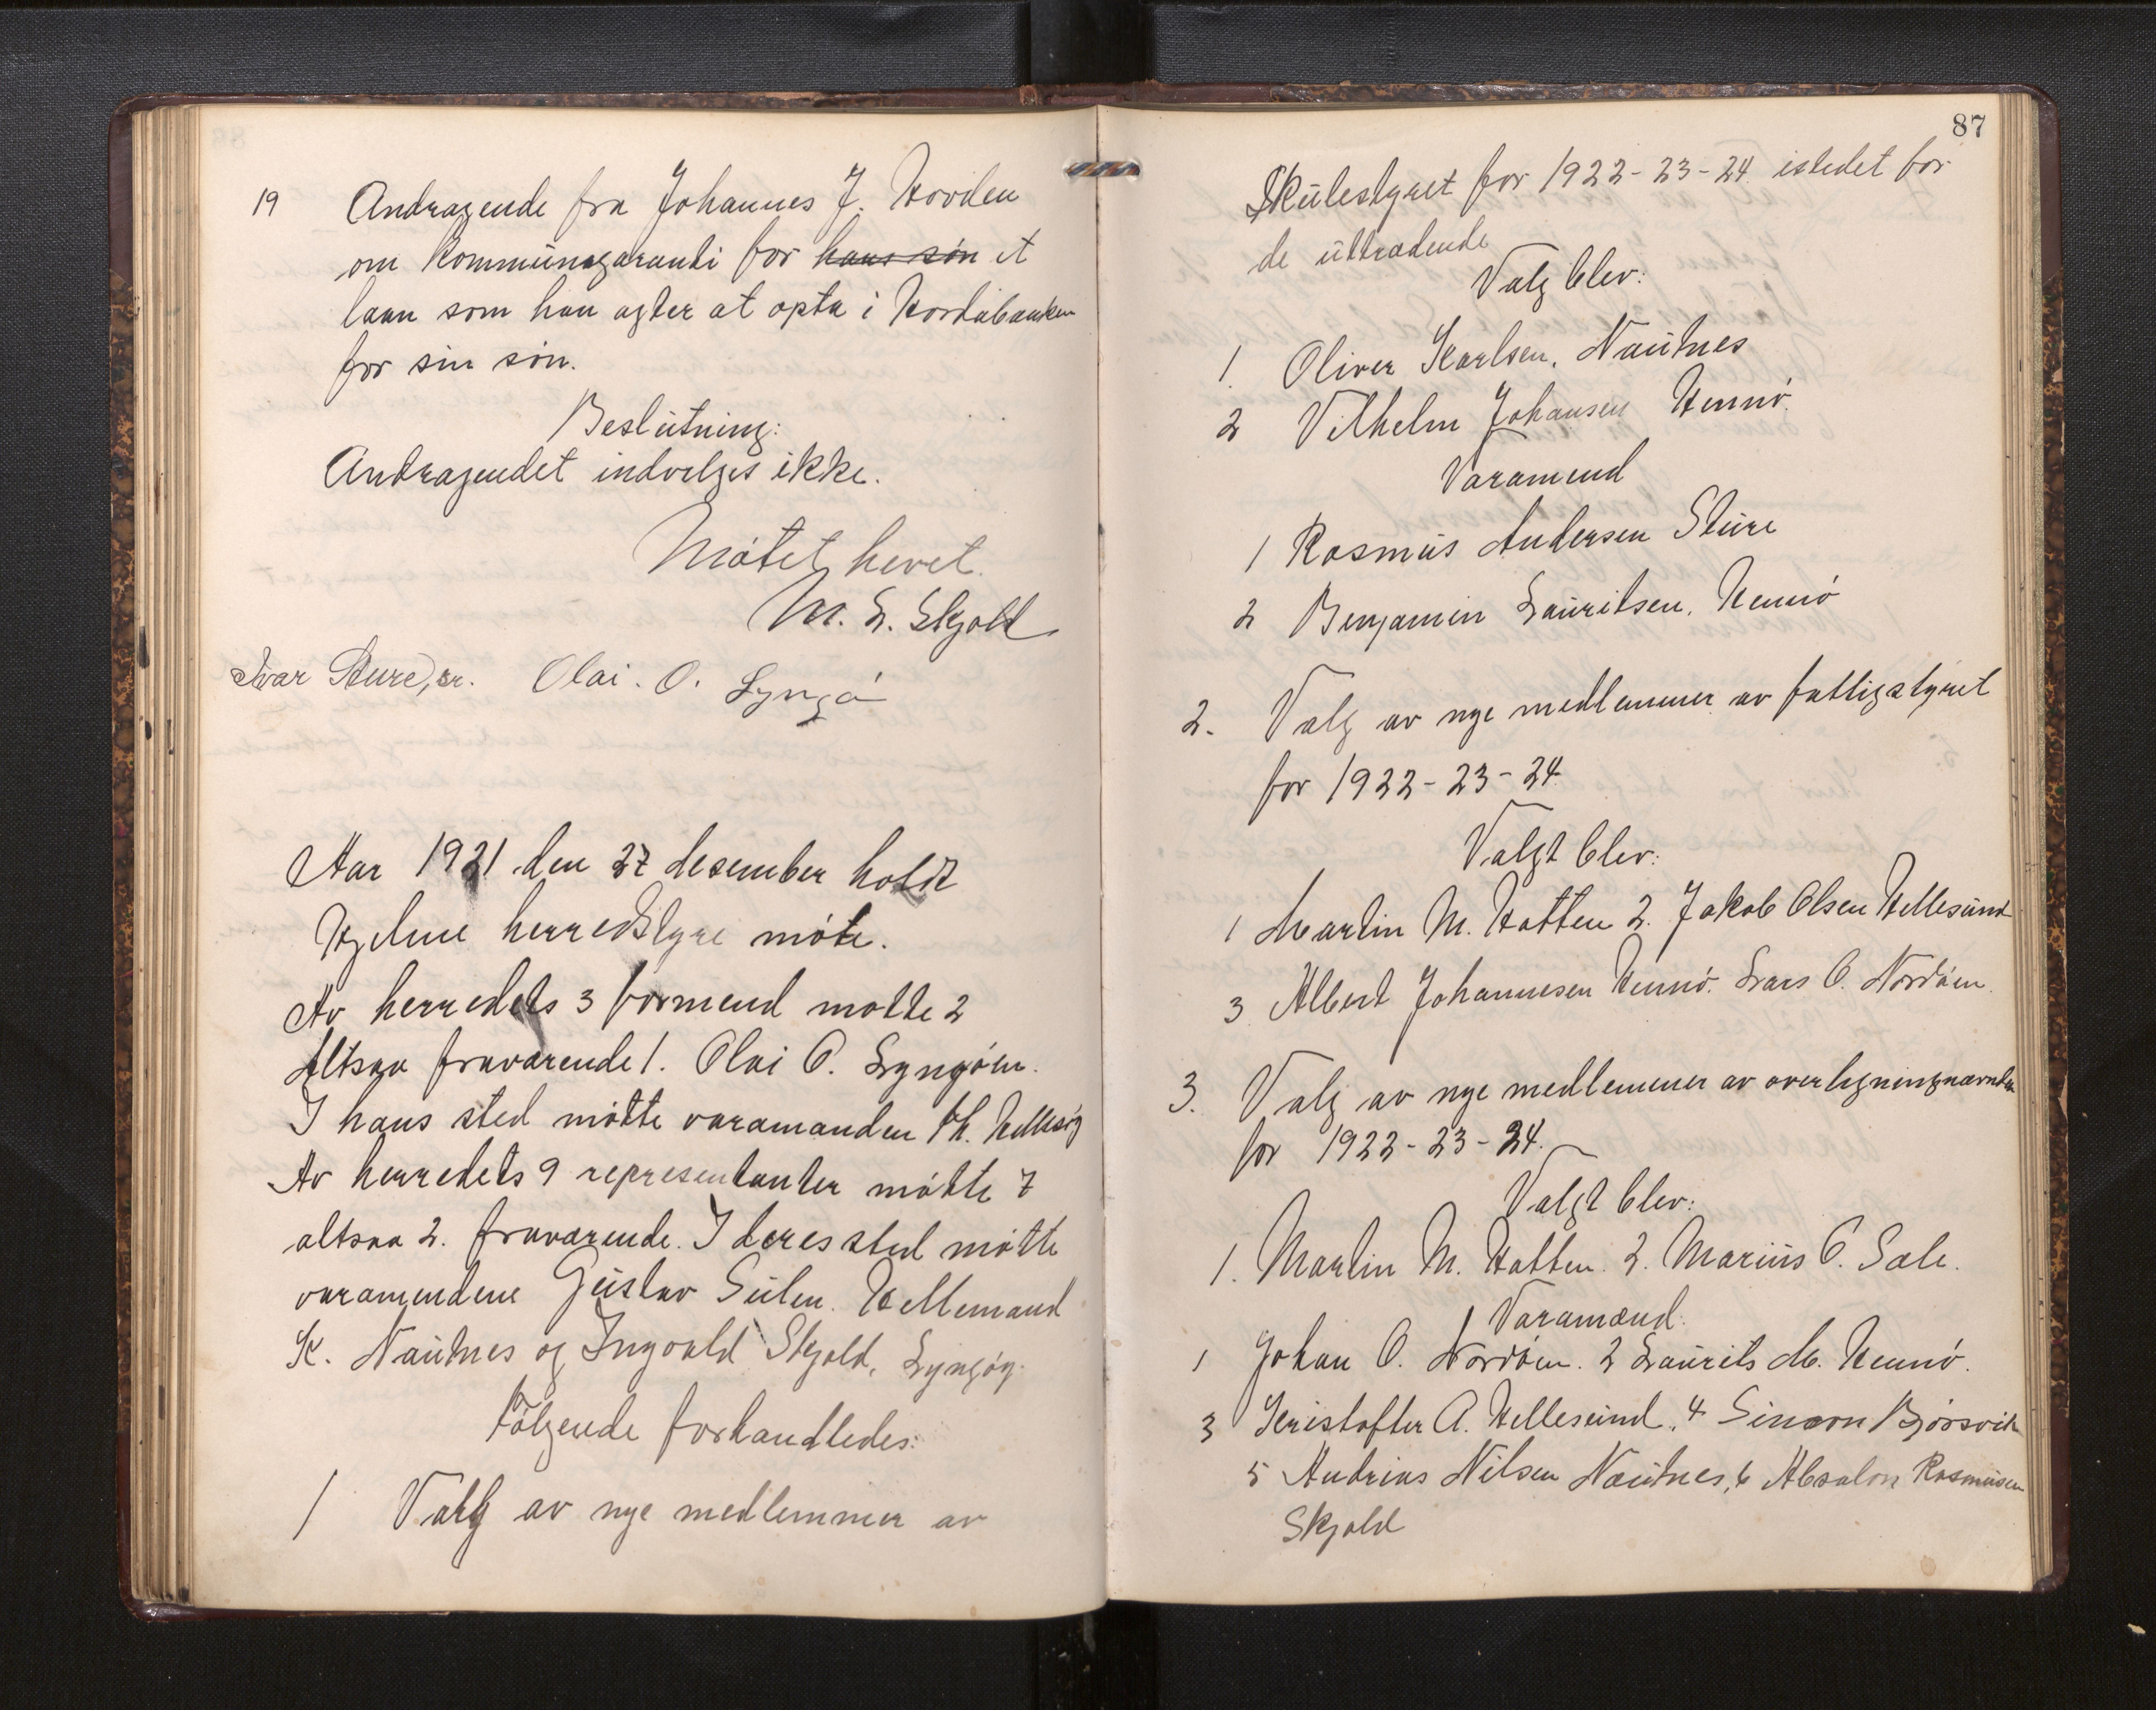 19 Andragende fra Johannes J. Hovden
om kommunegaranti for hans søn et
laan som han agter at opta i Hordabanken
for sin søn.
Beslutning:
Andragendet indvilges ikke.
Møtet hevet.
M. L. Skjold
Ivar Sture, sr. Olai. O. Lyngø
Aar 1921 den 27 desember holdt
Hjelme herredstyre møte.
Av herredets 3 formend møtte 2
Altsaa fraværende 1. Olai O. Lyngøen.
I hans sted møtte varamanden Th. Hellesøy
Av herredets 9 representanter møtte 7
altsaa 2. fraværende. I deres sted møtte
varamendene Gustav Sulen. Hellemand
K. Nautnes og Ingvald Skjold, Lyngøy.
Følgende forhandledes:
1 Valg av nye medlemmer av
87
Skulestyret for 1922-23-24 istedet for
de uttrædende
Valg blev:
1. Oliver Karlsen, Nautnes
2 Vilhelm Johansen Hennø.
Varamend
1 Rasmus Andersen Sture
2 Benjamin Lauritsen, Hennø
2. Valg av nye medlemmer av fattigstyret
for 1922-23-24.
Valgt blev:
1 Martin M. Hatten 2. Jakob Olsen Hellesund
3 Albert Johannesen Hennø. Lars O. Nordøen.
3. Valg av nye medlemmer av overligningsnævnden
for 1922-23-24.
Valgt blev:
1. Martin M. Hatten. 2. Marius O. Sæle.
Varamænd.
1 Johan O. Nordøen. 2 Laurits M. Hennø.
3 Kristoffer A. Hellesund. 4 Simon Bjørsvik
5 Andreas Nilsen Nautnes, 6 Absalon Rasmusen
Skjold